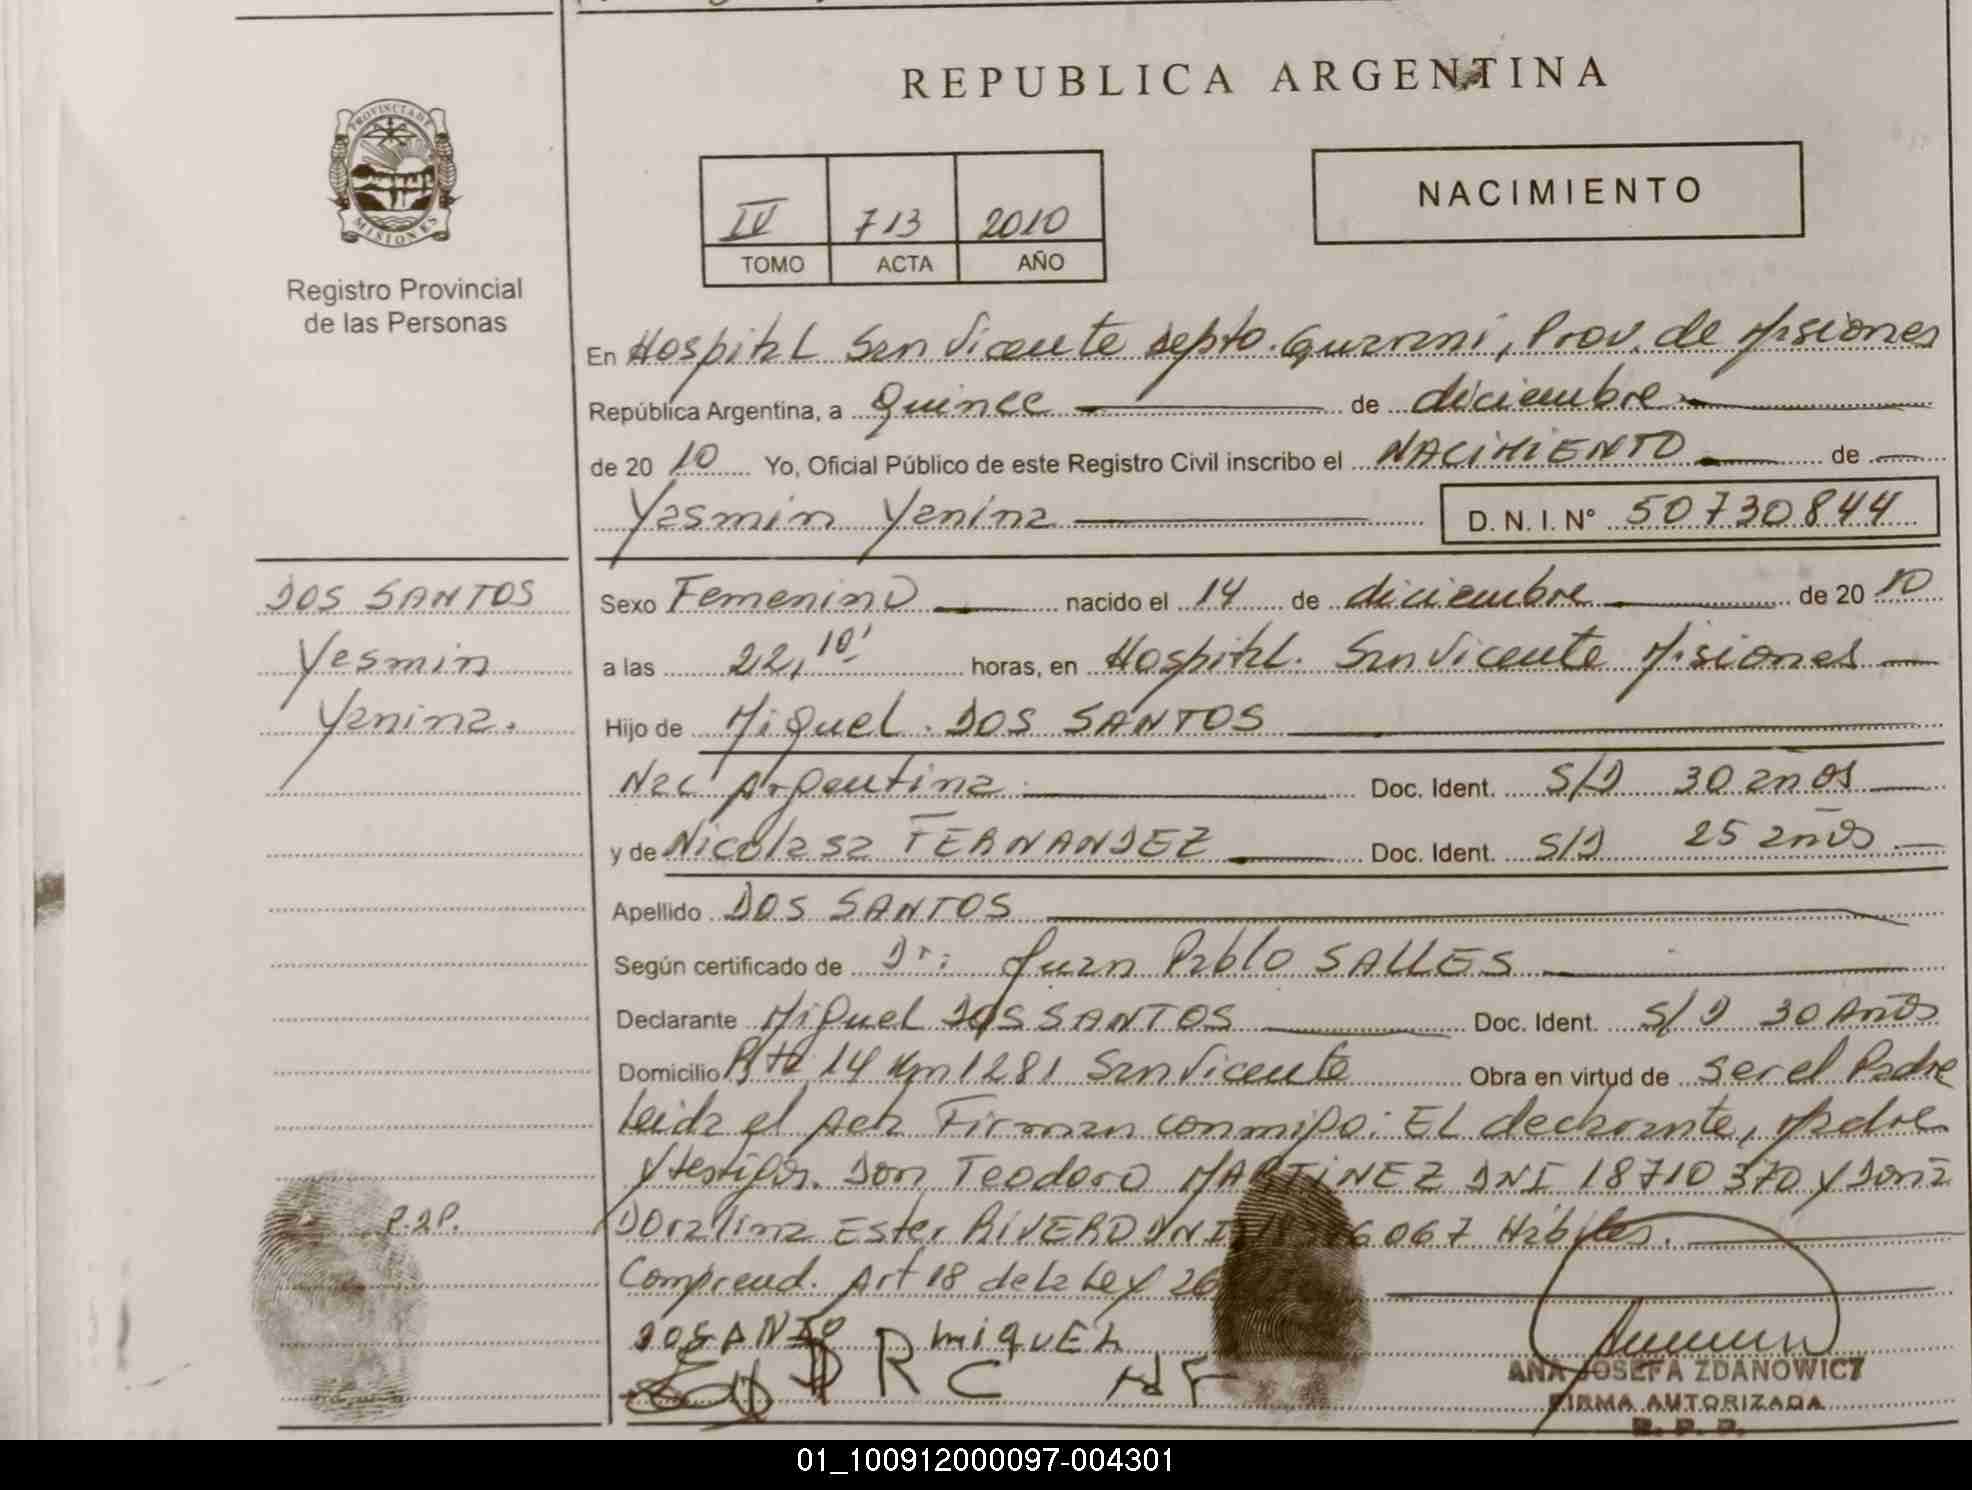 REPUBLICA ARGENTINA
PROVINCIA DE
MISIONES
Registro Provincial
de las Personas
IV 713 2010
TOMO ACTA AÑO
NACIMIENTO
En Hospital San Vicente Depto. Guarani, Prov. de Misiones
República Argentina, a Quince de diciembre
de 20 10 Yo, Oficial Público de este Registro Civil inscribo el NACIMIENTO de
Yasmin Yanina D. N. I. N° 50730844
DOS SANTOS
Yesmin
Yanina.
Sexo Femenino nacido el 14 de diciembre de 20 10
a las 22,10' horas, en Hospital. San Vicente Misiones
Hijo de Miguel. DOS SANTOS
Nac Argentina Doc. Ident. S/D 30 años
y de Nicolasa FERNANDEZ Doc. Ident. S/D 25 años
Apellido DOS SANTOS
Según certificado de Dr: Juan Pablo SALLES
Declarante Miguel DOS SANTOS Doc. Ident. S/D 30 Años
Domicilio Rta 14 Km 1281 San Vicente Obra en virtud de ser el Padre
Leida el Acta Firman conmigo: EL declarante, Madre
y testigos. Don Teodoro MARTINEZ DNI 18710370 y Doña
P.2P.
Doralina Ester RIVERO DNI 6067 Hábiles.
Comprend. Art 18 de la Ley 26
DOSANTO MIQUEL
R C NF
ANA JOSEFA ZDANOWICZ
FIRMA AUTORIZADA
R. P. P.
01_100912000097-004301